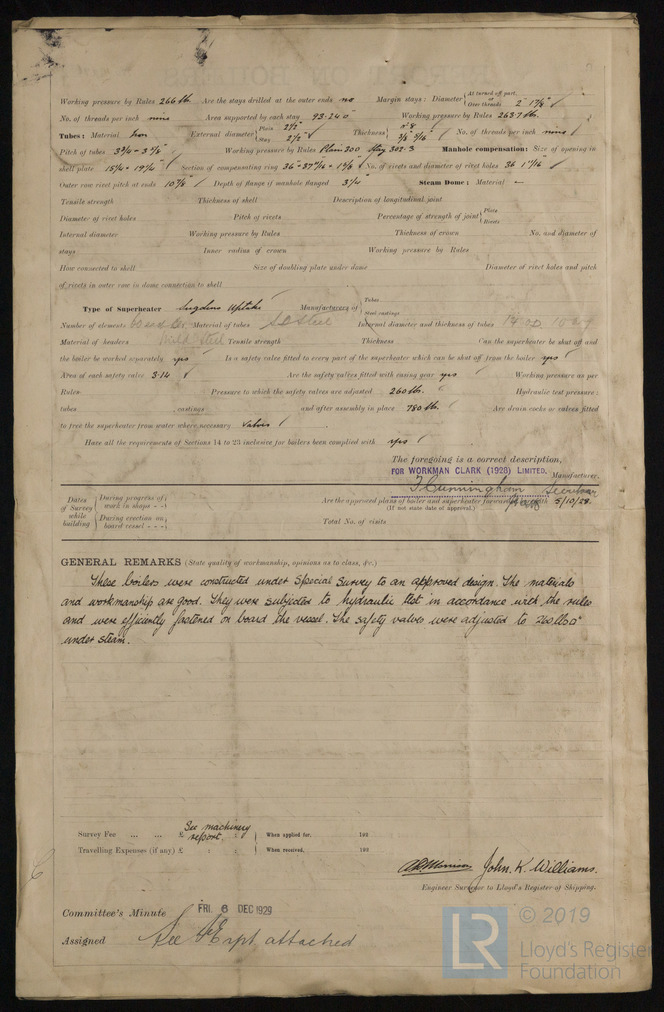 Working pressure by Rules 266 lb. Are the stays drilled at the outer ends no Margin stays: Diameter { At turned off part, or Over threads 2" 1⅞"
No. of threads per inch nine Area supported by each stay 93.24 Working pressure by Rules 263 lb.
Tubes: Material Iron External diameter { Plain 2½" Stay 2½" Thickness { No. of threads per inch nine
Pitch of tubes Working pressure by Rules Plain 300 Stay Manhole compensation: Size of opening in
shell plate Section of compensating ring No. of rivets and diameter of rivet holes 36
Outer row rivet pitch at ends Depth of flange if manhole flanged 3¼" Steam Dome: Material –
Tensile strength Thickness of shell Description of longitudinal joint
Diameter of rivet holes Pitch of rivets Percentage of strength of joint { Plate Rivets
Internal diameter Working pressure by Rules Thickness of crown No. and diameter of
stays Inner radius of crown Working pressure by Rules
How connected to shell Size of doubling plate under dome Diameter of rivet holes and pitch
of rivets in outer row in dome connection to shell
Type of Superheater Sugdens Uptake Manufacturers of { Tubes Steel castings
Number of elements Material of tubes S D Steel Internal diameter and thickness of tubes
Material of headers Mild Steel Tensile strength Thickness Can the superheater be shut off and
the boiler be worked separately yes Is a safety valve fitted to every part of the superheater which can be shut off from the boiler yes
Area of each safety valve 3.14 Are the safety valves fitted with easing gear yes Working pressure as per
Rules Pressure to which the safety valves are adjusted 260 lb. Hydraulic test pressure:
tubes castings and after assembly in place 780 lb. Are drain cocks or valves fitted
to free the superheater from water where necessary Valves
Have all the requirements of Sections 14 to 23 inclusive for boilers been complied with yes
The foregoing is a correct description,
FOR WORKMAN CLARK (1928) LIMITED, Manufacturer.
J Cunningham Secretary
Dates of Survey while building { During progress of work in shops - - { During erection on board vessel - - -
Are the approved plans of boiler and superheater forwarded herewith 5/10/28
(If not state date of approval.)
Total No. of visits
GENERAL REMARKS (State quality of workmanship, opinions as to class, &c.)
These boilers were constructed under Special Survey to an approved design. The materials
and workmanship are good. They were subjected to hydraulic test in accordance with the rules
and were efficiently fastened on board the vessel. The safety valves were adjusted to 260 lb □"
under steam.
Survey Fee ... ... £ See machinery report. When applied for, 192
Travelling Expenses (if any) £ : : When received, 192
John. K. Williams.
Engineer Surveyor to Lloyd's Register of Shipping.
Committee's Minute FRI. 6 DEC 1929
Assigned See Rpt attached
© 2019
LR
Lloyd's Register
Foundation